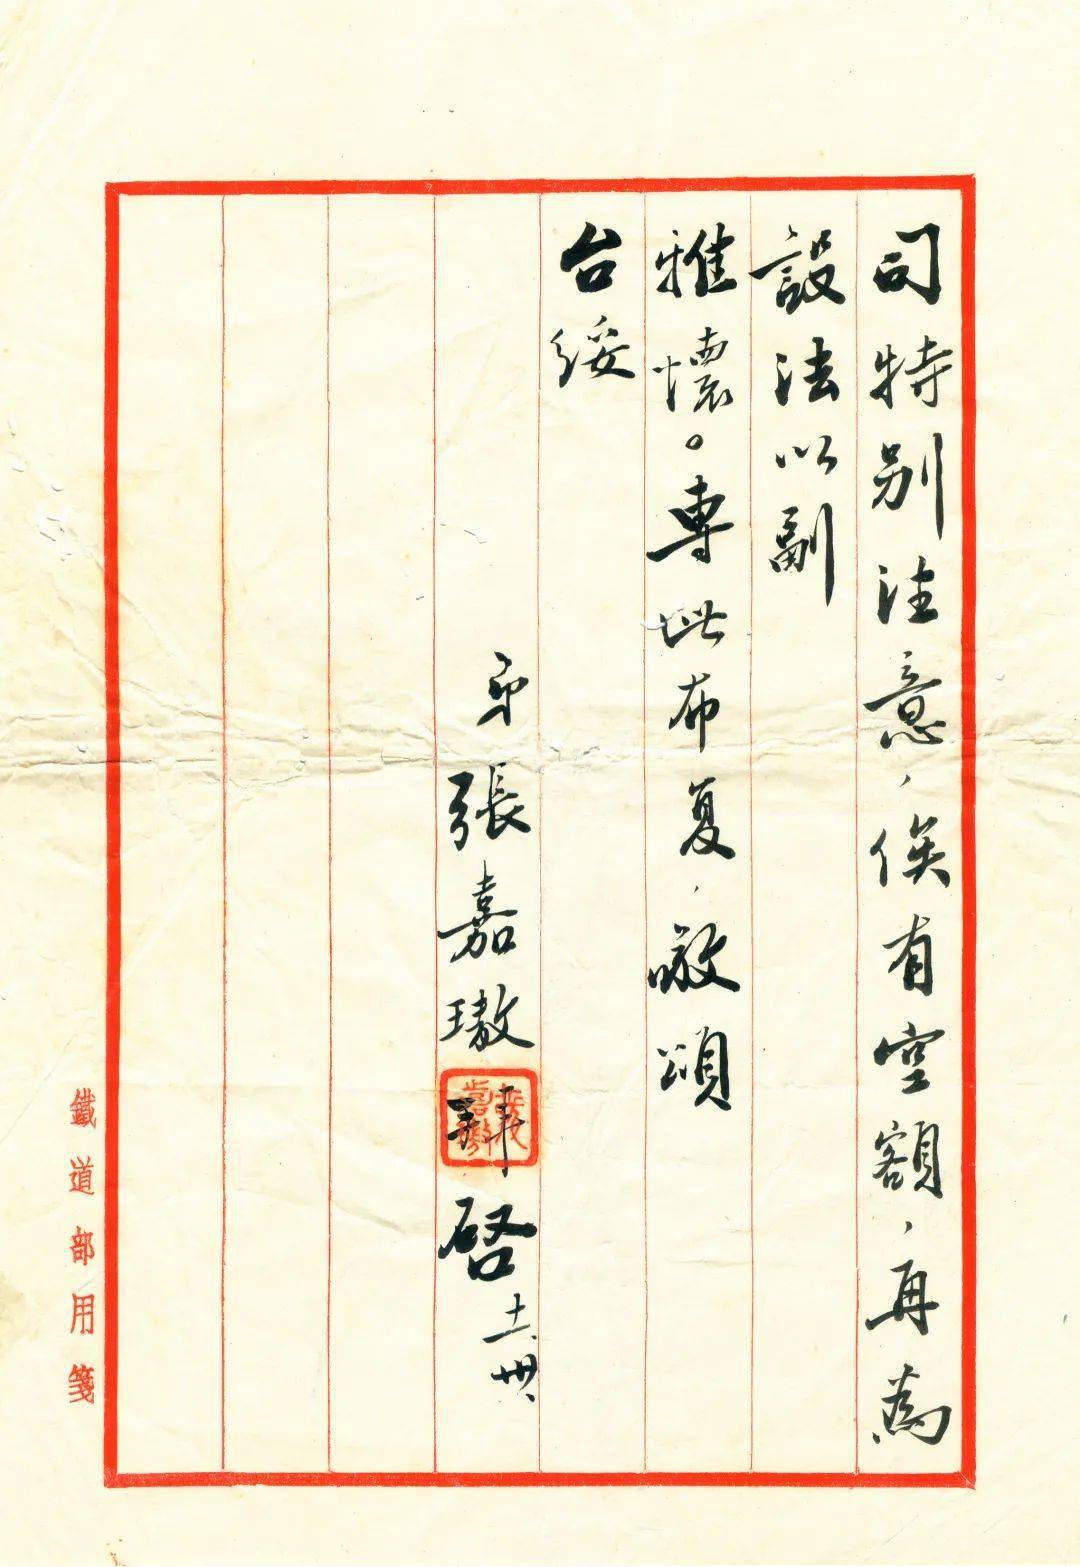 司特別注意,俟有空額,再為
設法以副
雅懷。專此布复,敬頌
台綏
弟張嘉璈拜啓 十一、卅、
鐵道部用箋